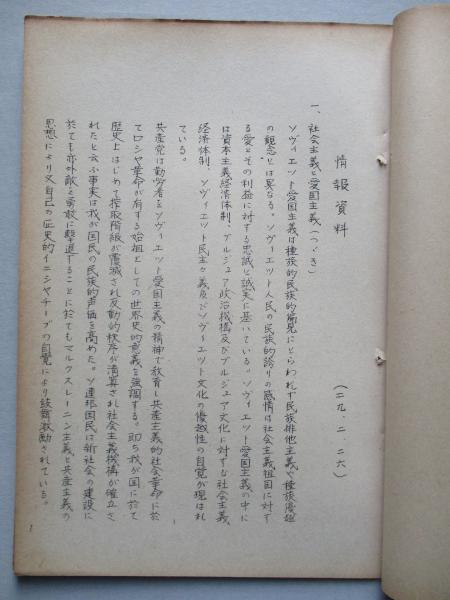 情報資料
（二九、二、二六）
一、社会主義と愛国主義（つゞき）
ソヴィエット愛国主義は種族的民族的偏見にとらわれず民族排他主義や種族優越
の観念とは異なる。ソヴィエット人民の民族的誇りの感情は社会主義祖国に対す
る愛とその利益に対する忠誠と誠実に基いている。ソヴィエット愛国主義の中に
は資本主義経済体制、ブルジュア政治機構及びブルジュア文化に対する社会主義
経済体制、ソヴィエット民主々義及びソヴィエット文化の優越性の自覚が現はれ
ている。
共産党は勤労者をソヴィエット愛国主義の精神で教育し共産主義的社会革命に於
てロシヤ革命が有する始祖としての世界史的意義を強調する。即ち我が国に於て
歴史上はじめて搾取階級が覆滅され反動的秩序が清算され社会主義機構が確立さ
れたと云ふ事実は我が国民の民族的声価を高めた。ソ連邦国民は新社会の建設に
於ても亦外敵を勇敢に撃退することに於てもマルクスレーニン主義と共産主義の
思想により又自己の歴史的イニシヤチーブの自覚により鼓舞激励されている。